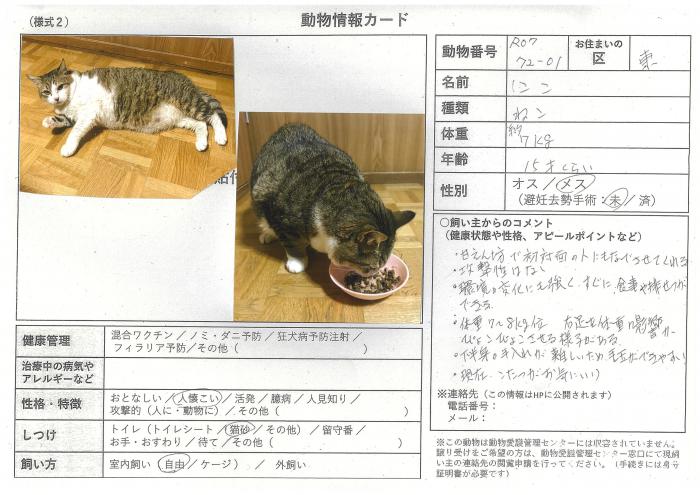 (様式2)
動物情報カード
動物番号 R07 72-01 お住まいの区 東
名前 にこ
種類 ねこ
体重 約7kg
年齢 15才くらい
性別 オス／メス
(避妊去勢手術：未／済)
貼付
○飼い主からのコメント
(健康状態や性格、アピールポイントなど)
・甘えん坊で初対面の人にもなでさせてくれる
・攻撃性はない
・環境の変化にも強く、すぐに食事や排せつが
できる
・体重7〜8kg位 右足を体重の影響か
ひょこひょこさせる様子がある
・下半身の手入れが難しいため毛玉ができやすい
・現在、こたつがお気にいり
※連絡先（この情報はHPに公開されます）
電話番号：
メール：
健康管理 混合ワクチン／ノミ・ダニ予防／狂犬病予防注射／
フィラリア予防／その他（ ）
治療中の病気や
アレルギーなど
性格・特徴 おとなしい／人懐こい／活発／臆病／人見知り／
攻撃的（人に・動物に）／その他（ ）
しつけ トイレ（トイレシート／猫砂／その他）／留守番／
お手・おすわり／待て／その他（ ）
飼い方 室内飼い（自由／ケージ） ／ 外飼い
※この動物は動物愛護管理センターには収容されていません。
譲り受けをご希望の方は、動物愛護管理センター窓口にて現飼
い主の連絡先の閲覧申請を行ってください。（手続きには身分
証明書が必要です）